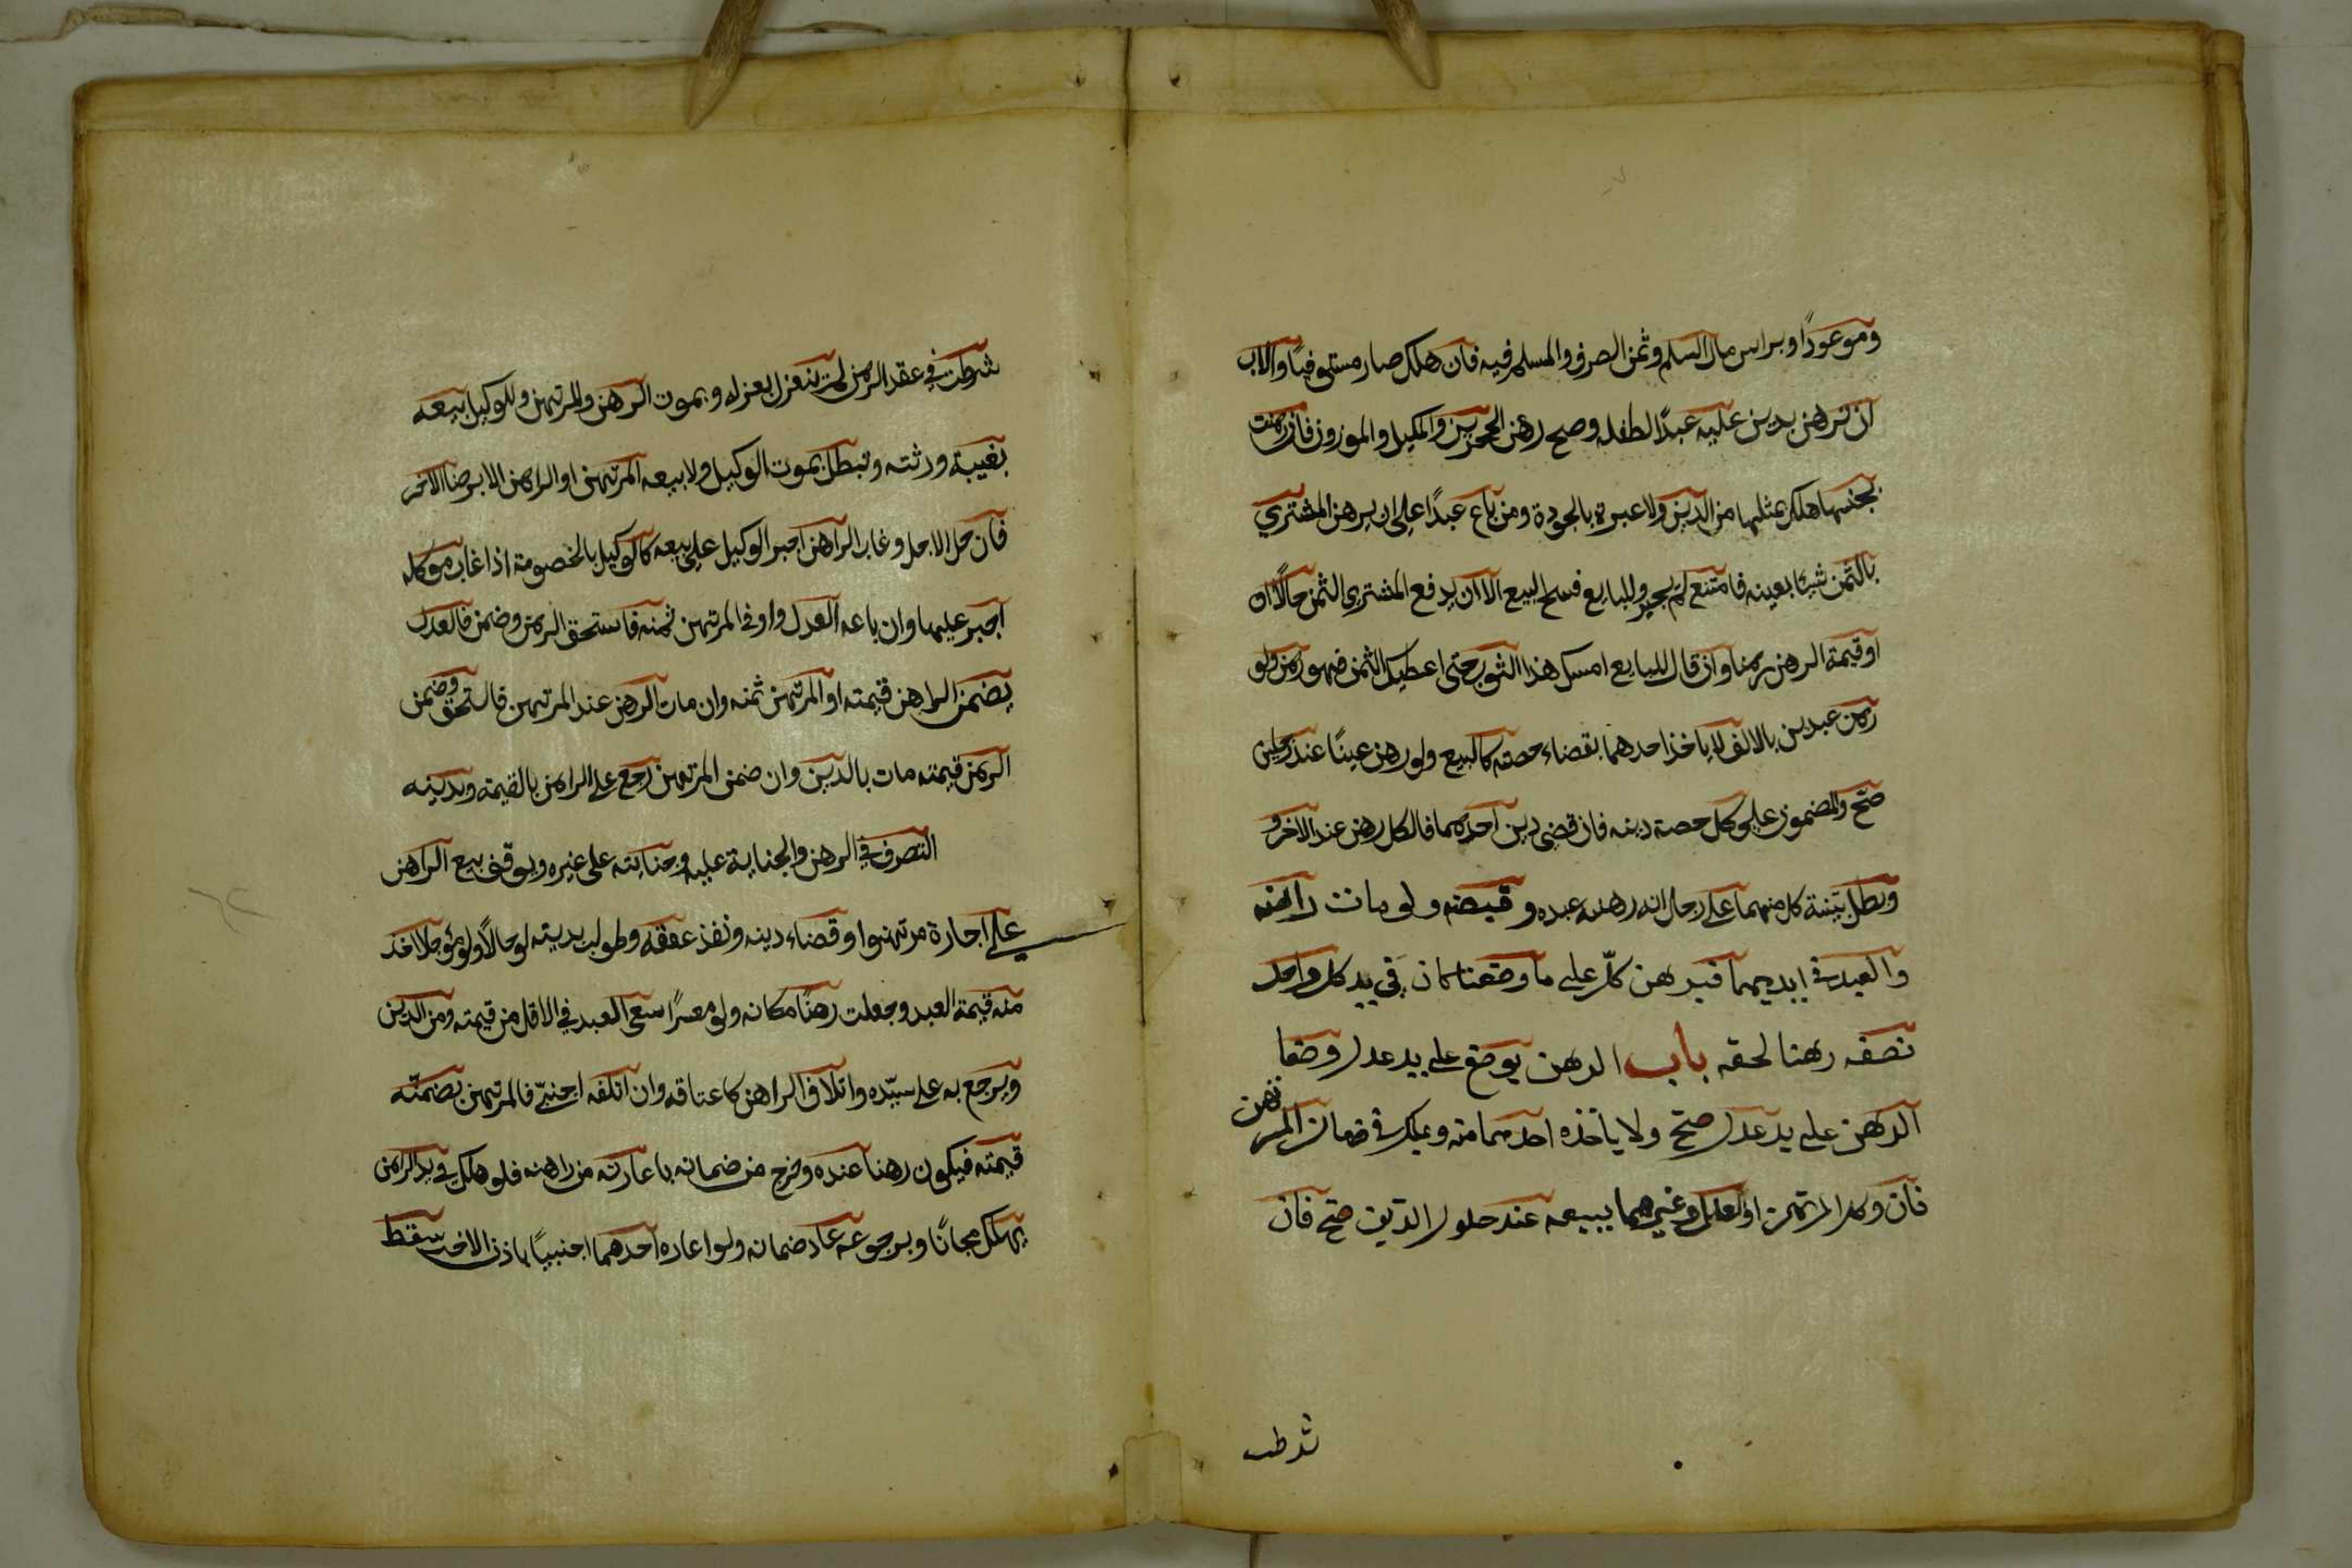 وموعودًا وبراس مال السلم وثمن الصرف والمسلم فيه فان هلك صار مستوفيًا وللاب
ان يرهن بدين عليه عبدًا لطفله وصح رهن الحجرين والمكيل والموزون فان رهنت
بجنسها هلك بمثلها من الدين ولا عبرة بالجودة ومن باع عبدًا على ان يرهن المشتري
بالثمن شيئا بعينه فامتنع لم يجبر وللبايع فسخ البيع الا ان يدفع المشتري الثمن حالًا او
او قيمة الرهن رهنا وان قال للبايع امسك هذا الثوب حتى اعطيك الثمن فهو رهن ولو
رهن عبدين بالالف لا ياخذ احدهما بقضاء حصته كالبيع ولو رهن عينًا عند رجلين
صح والمضمون على كل حصة دينه فان قضى دين احدهما فالكل رهن عند الاخر و
وبطل بينة كل منهما على رجل انه رهنه عبده وقبضه ولو مات راهنه
والعبد في ايديهما فبرهن كل على ما وصفنا كان في يد كل واحد
نصفه رهنا لحقه باب الرهن يوضع على يد عدل وضعا
الرهن على يد عدل صح ولا ياخذه احدهما منه ويهلك في ضمان المرتهن
فان وكل المرتهن او العدل او غيرهما ببيعه عند حلول الدين صح فان
شرطت
شرطت في عقد الرهن لم ينعزل بعزله وبموت الرهن والمرتهن وللوكيل بيعه
بغيبة ورثته وتبطل بموت الوكيل ولا يبيعه المرتهن او الراهن الا برضا الاخر
فان حل الاجل وغاب الراهن اجبر الوكيل على بيعه كالوكيل بالخصومة اذا غاب موكله
اجبر عليها وان باعه العدل واوفى المرتهن ثمنه فاستحق الرهن وضمن فالعدل
يضمن الراهن قيمته او المرتهن ثمنه وان مات الرهن عند المرتهن فاستحق وضمن
الرهن قيمته مات بالدين وان ضمن المرتهن رجع على الراهن بالقيمة وبدينه
التصرف في الرهن والجناية عليه وجنايته على غيره ويوقف بيع الراهن
على اجازة مرتهنه او قضاء دينه ونفذ عتقه وطولب بدينه لو حالًا ولو مؤجلا اخذ
منه قيمة العبد وجعلت رهنًا مكانه ولو معسرًا سعى العبد في الاقل من قيمته ومن الدين
ويرجع به على سيّده واتلاف الراهن كاعتاقه وان اتلفه اجنبيّ فالمرتهن يضمنّه
قيمته فيكون رهنا عنده وخرج من ضمانه باعارته من راهنه فلو هلك في يد الراهن
يهلك مجانًا وبرجوعه عاد ضمانه ولو اعاره احدهما اجنبيًا باذن الاخر سقط